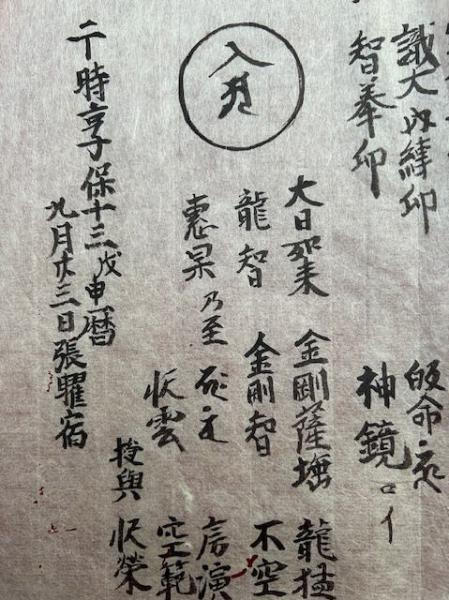 識大内縛印
智拳印
皈命
神鏡ロイ
大日如来 金剛薩埵 龍猛
龍智 金剛智 不空
恵果乃至 房演
快雲 空範
授與 快榮
入
于時享保十三戊申暦
九月廿三日張曜宿